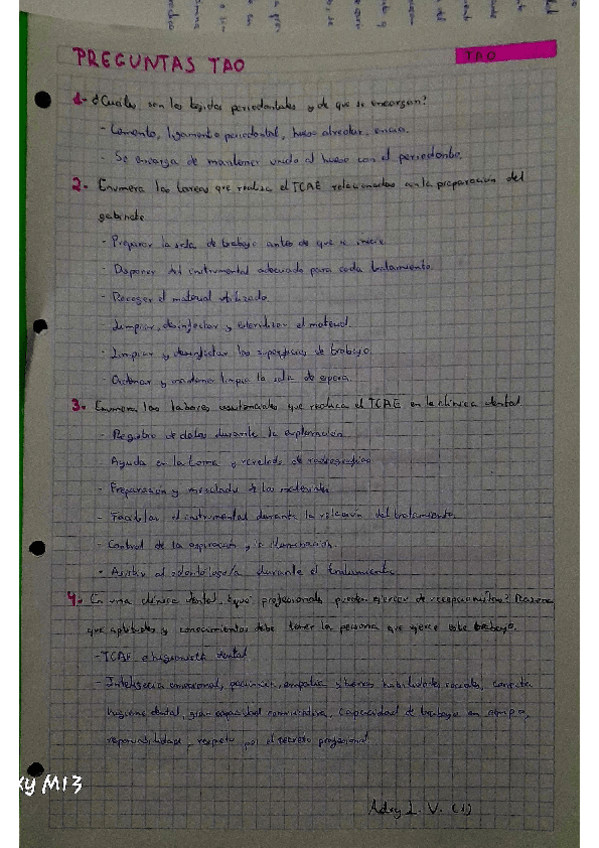 PREGUNTAS TAO
TAO
1- ¿Cuales son los tejidos periodontales y de que se encargan?
- Cemento, ligamento periodontal, hueso alveolar, encia.
- Se encarga de mantener unido al hueso con el periodonto.
2- Enumera las tareas que realiza el TCAE relacionadas con la preparación del
gabinete
- Preparar la sala de trabajo antes de que se inicie
- Disponer del instrumental adecuado para cada tratamiento.
- Recoger el material utilizado.
- Limpiar, desinfectar y esterilizar el material.
- Limpiar y desinfectar las superficies de trabajo.
- Ordenar y mantener limpia la sala de espera.
3- Enumera las labores asistenciales que realiza el TCAE en la clínica dental
- Registro de datos durante la exploración
- Ayuda en la toma y revelado de radiografias
- Preparación y mezclado de los materiales
- Facilitar el instrumental durante la del tratamiento.
- Control de la aspiración y la iluminación.
- Asistir al odontologo/a durante el
4- En una clínica dental, ¿qué profesionales pueden ejercer de recepcionistas? Razona
que aptitudes y conocimientos debe tener la persona que ejerce este trabajo.
- TCAE o higienista dental
- Inteligencia emocional, paciencia, empatia y buenas habilidades sociales, correcta
higiene dental, gran capacidad comunicativa, Capacidad de trabajo en equipo,
responsabilidad, respeto por el secreto profesional.
M13
Adry L. V. (1)